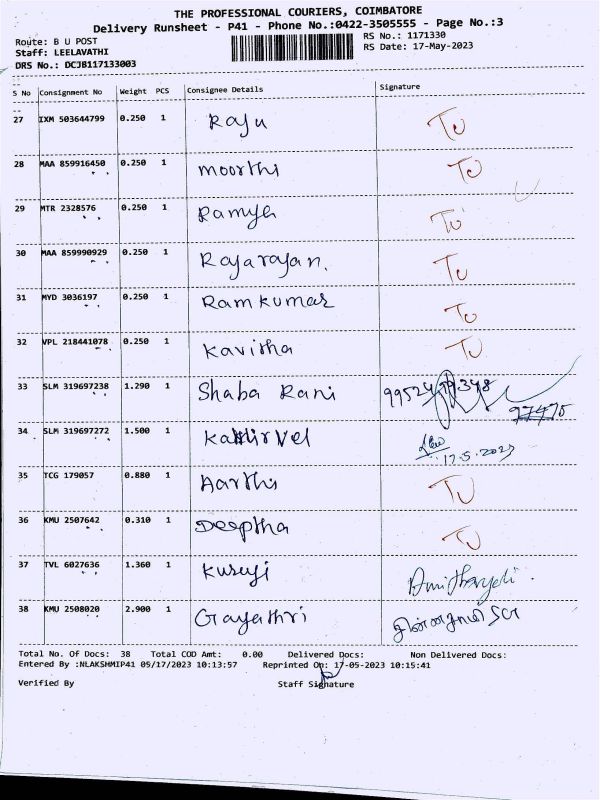 THE PROFESSIONAL COURIERS, COIMBATORE
Delivery Runsheet - P41 - Phone No.:0422-3505555 - Page No.:3
Route: B U POST RS No.: 1171330
Staff: LEELAVATHI RS Date: 17-May-2023
DRS No.: DCJB117133003
S No Consignment No Weight PCS Consignee Details Signature
27 IXM 503644799 0.250 1 Raju TU
28 MAA 859916450 0.250 1 moorthi TU
29 MTR 2328576 0.250 1 Ramya TU
30 MAA 859990929 0.250 1 Rajarajan. TU
31 MYD 3036197 0.250 1 Ramkumar TU
32 VPL 218441078 0.250 1 Kavitha TU
33 SLM 319697238 1.290 1 Shaba Rani
34 SLM 319697272 1.500 1 Kathirvel 17.5.2023
35 TCG 179057 0.880 1 Aarthi TU
36 KMU 2507642 0.310 1 Deeptha TU
37 TVL 6027636 1.360 1
38 KMU 2508020 2.900 1 Gayathri
Total No. Of Docs: 38 Total COD Amt: 0.00 Delivered Docs: Non Delivered Docs:
Entered By :NLAKSHMIP41 05/17/2023 10:13:57 Reprinted On: 17-05-2023 10:15:41
Verified By Staff Signature